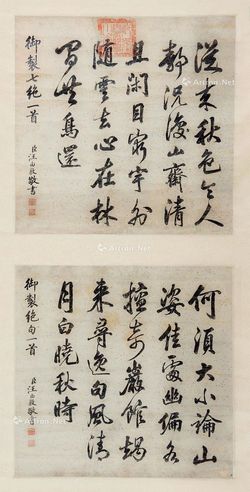 從來秋色令人
靜況復山齋清
且閒目窮宇外
隨雲去心在林
間共鳥還
御製七絕一首
臣汪由敦敬書
何須大小論山
姿佳處幽偏各
擅奇巖館朅
來尋逸句風清
月白曉秋時
御製絕句一首
臣汪由敦敬書